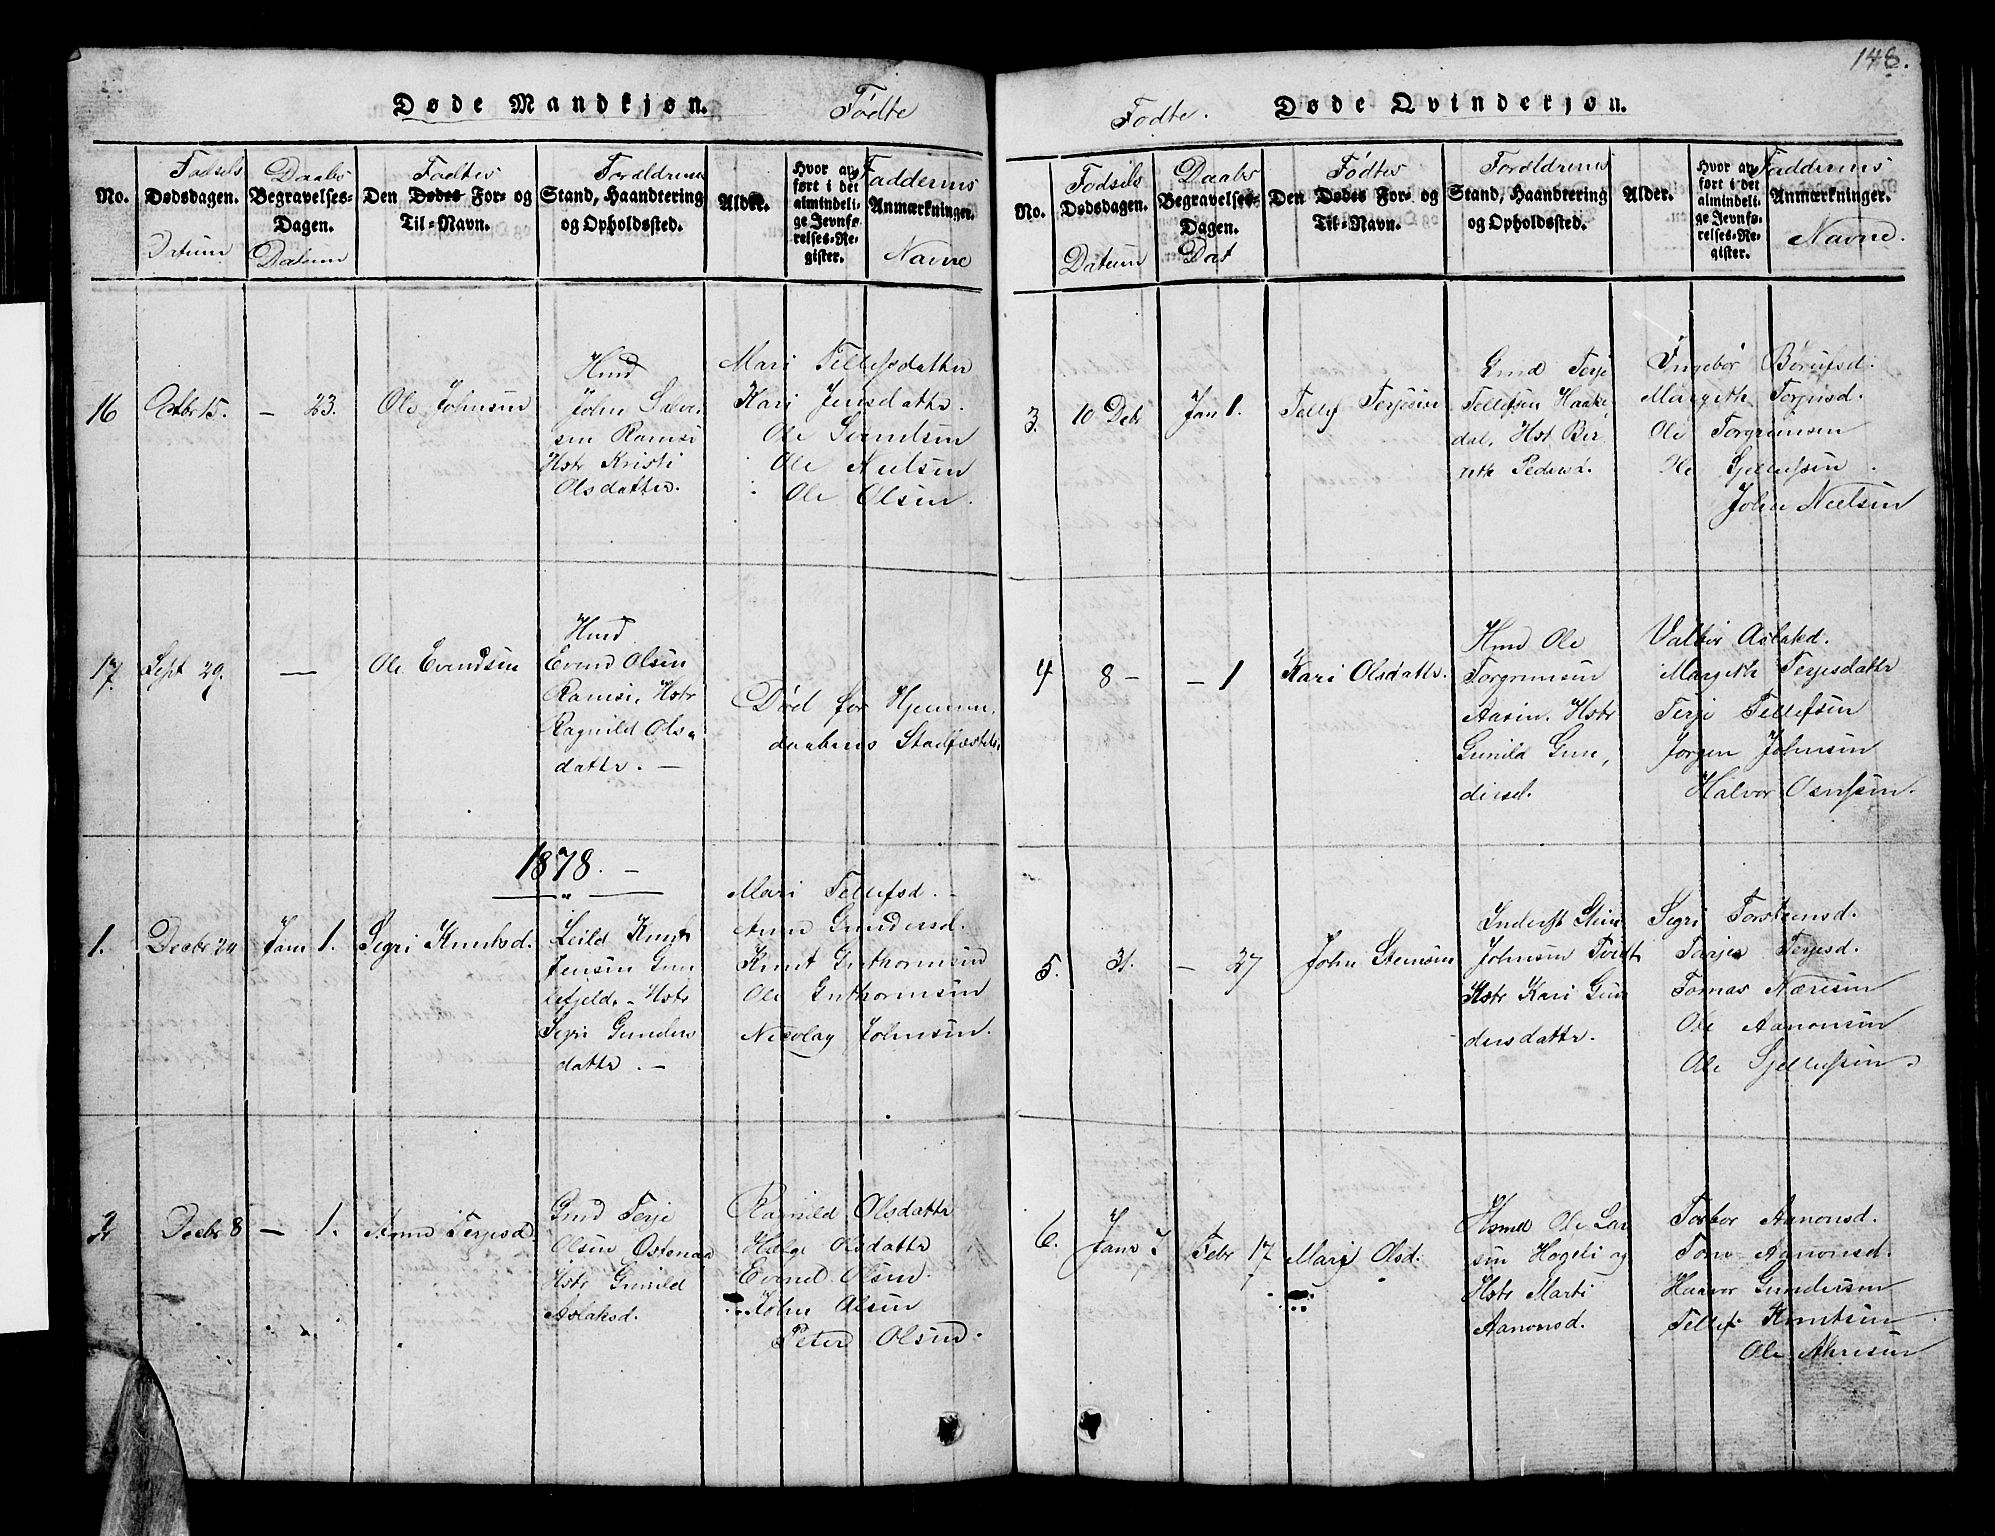 148.
Døde Mandkjøn. Fødte
No.
Fødsels
Dødsdagen.
Datum
Daabs
Begravelses-
Dagen.
Datum
Fødtes
Den Dødes For- og
Til-Navn.
Forældrenes
Stand, Haandtering
og Opholdssted.
Alder.
Hvor an-
ført i det
almindeli-
ge Jevnfø-
relses-Re-
gister.
Faddernes
Anmærkninger.
Navne
16
Octbr 15.
— 23.
Ole Johnsen
Hmd
John Salve-
sen Ramse
Hstr Kristi
Olsdatter.
Mari Tellefsdatter
Kari Jensdattr.
Ole Evendsen
Ole Nielsen
Ole Olsen.
17.
Sept 29.
—
Ole Evendsen
Hmd.
Evend Olsen
Ramse, Hstr
Ragnild Ols-
dattr. —
Død før Hjemme-
daabens Stadfæstelse
1878. —
1.
Decbr 24
Janr 1.
Segri Knutsd.
Leild Knut
Jensen Gun
lefjeld. — Hstr
Segri Gunders
dattr. —
Mari Tellefsd. —
Anne Gundersd.
Knut Guthormsen
Ole Guthormsen
Nicolay Johnsen.
2
Decbr 8
— 1.
Anne Terjesd.
Gmd Terje
Olsen Ostenaa
Hstr Gunild
Aslaksd.
Ragnild Olsdattr
Helge Olsdattr
Evend Olsen.
John Olsen
Peter Olsen.
Fødte. Døde Qvindekjøn.
No.
Fødsels
Dødsdagen.
Datum
Daabs
Begravelses-
Dagen.
Dat
Fødtes
Den Dødes For- og
Til-Navn.
Forældrenes
Stand, Haandtering
og Opholdssted.
Alder.
Hvor an-
ført i det
almindeli-
ge Jevnfø-
relses-Re-
gister.
Faddernes
Anmærkninger.
Navne.
3.
10 Debr
Jan 1.
Tellef Terjesen
Gmd Terje
Tellefsen Haake-
dal, Hst Ber-
reth Pedersd.
Ingebor
Margith Terjesd.
Ole Torgrimsen
Ole Sjellefsen.
John Nielsen
4
8 —
— 1
Kari Olsdattr.
Hmd Ole
Torgrimsen
Aasen. Hstr
Gunild Gun-
dersd.
Valbor Aslaksd.
Margith Terjesdattr
Terje Tellefsen
Jørgen Johnsen
Halvor
5.
31.
— 27
John Stensen
Inderst Sten
Johnsen Tvedt
Hstr Kari Gun
dersdattr.
Segri Torstensd.
Terjesd.
Tomas
Ole Aanonsen
Ole Sjellefsen
6.
Janr 7
Febr 17
Mari Olsd.
Hsmd Ole Lar
sen Hogeli og
Hstr Marti
Aanonsd.
Torbor Aanonsd.
Tone Aanonsd.
Haavor Gundersen
Tellef Knutsen
Ole